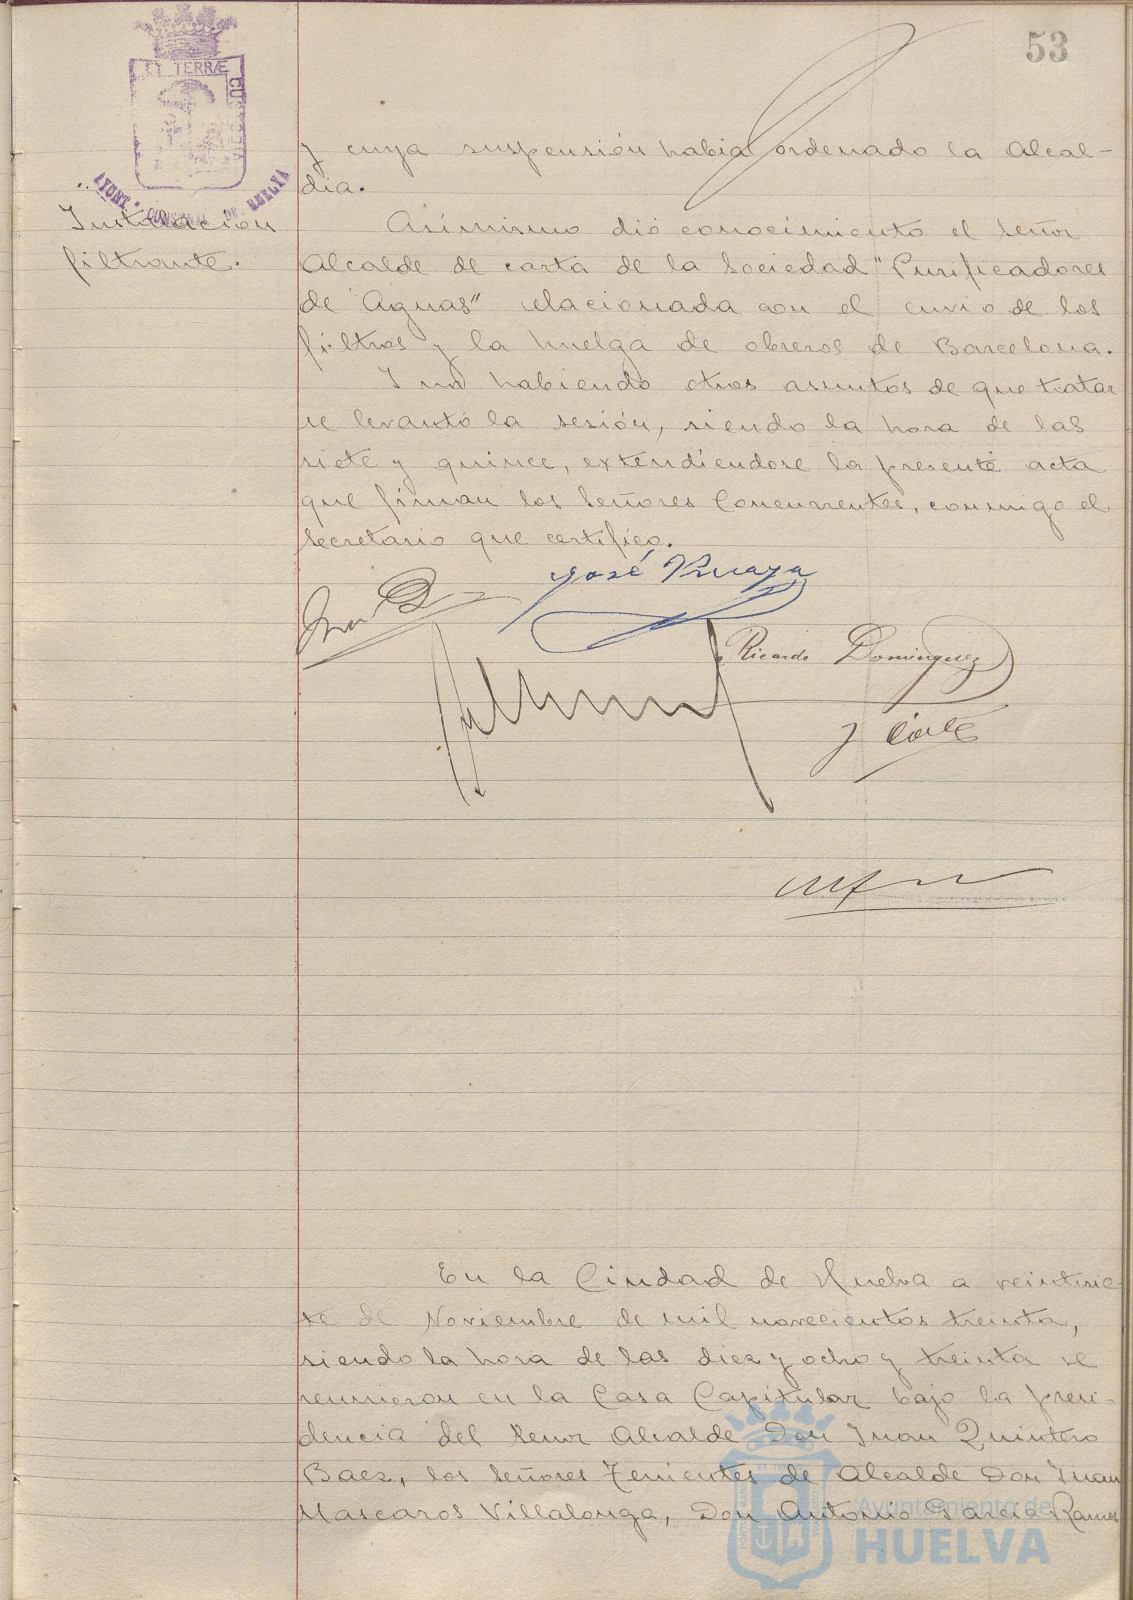 53
ET TERRÆ CUS
AYUNT. CONSTNAL. DE HUELVA
Instalación
filtrante.
y cuya suspensión habia ordenado la Alcal-
dia.
Asímismo dió conocimiento el Señor
Alcalde de carta de la Sociedad "Purificadores
de Aguas" relacionada con el envio de los
filtros y la huelga de obreros de Barcelona.
Y no habiendo otros asuntos de que tratar
se levantó la sesión, siendo la hora de las
siete y quince, extendiendose la presente acta
que firman los Señores Concurrentes, conmigo el
Secretario que certifico.
José
Ricardo Dominguez
En la Ciudad de Huelva a veintisie-
te de Noviembre de mil novecientos treinta,
siendo la hora de las diez y ocho y treinta se
reunieron en la Casa Capitular bajo la presi-
dencia del Señor Alcalde Don Juan Quintero
Baez, los Señores Tenientes de Alcalde Don Juan
Mascaros Villalonga, Don Antonio Garcia Ramos
Ayuntamiento de
HUELVA